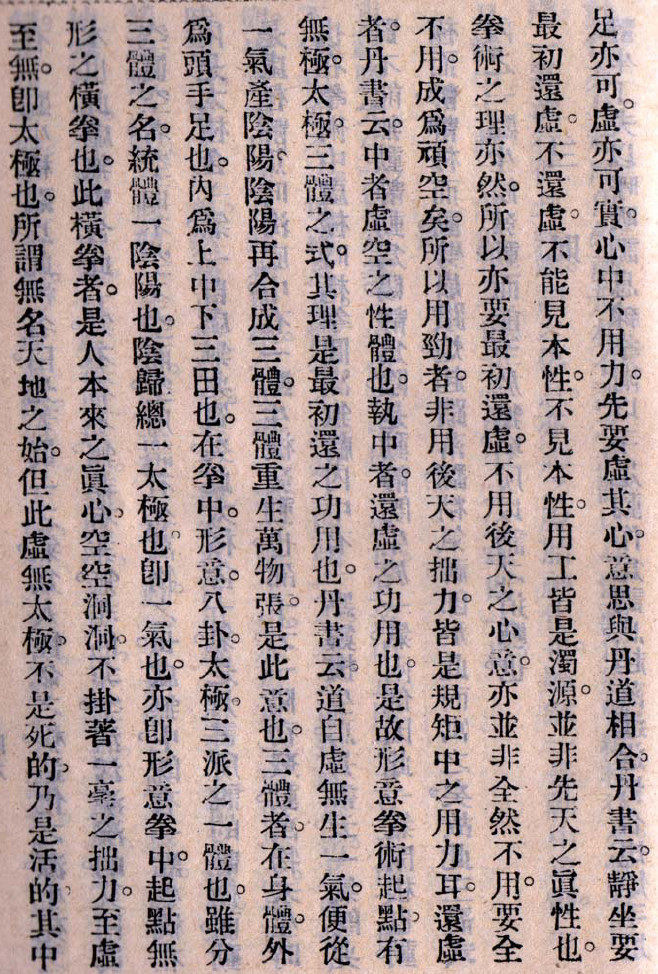 足亦可。虛亦可。實心中不用力。先要虛其心。意思與丹道相合。丹書云。靜坐要
最初還虛。不還虛。不能見本性。不見本性。用工皆是濁源。並非先天之眞性也。
拳術之理亦然。所以亦要最初還虛。不用後天之心意。亦並非全然不用。要全
不用。成爲頑空矣。所以用勁者。非用後天之拙力。皆是規矩中之用力耳。還虛
者。丹書云。中者虛空之性體也。執中者。還虛之功用也。是故形意拳術起點。有
無極。太極。三體之式。其理是最初還之功用也。丹書云。道自虛無生一氣。便從
一氣產陰陽。陰陽再合成三體。三體重生萬物張。是此意也。三體者。在身體。外
爲頭手足也。內爲上中下三田也。在拳中。形意。八卦。太極。三派之一體也。雖分
三體之名。統體一陰陽也。陰歸總一太極也。卽一氣也。亦卽形意拳中。起點無
形之橫拳也。此橫拳者。是人本來之眞心。空空洞洞。不掛著一毫之拙力。至虛
至無。卽太極也。所謂無名天地之始。但此虛無太極。不是死的。乃是活的。其中